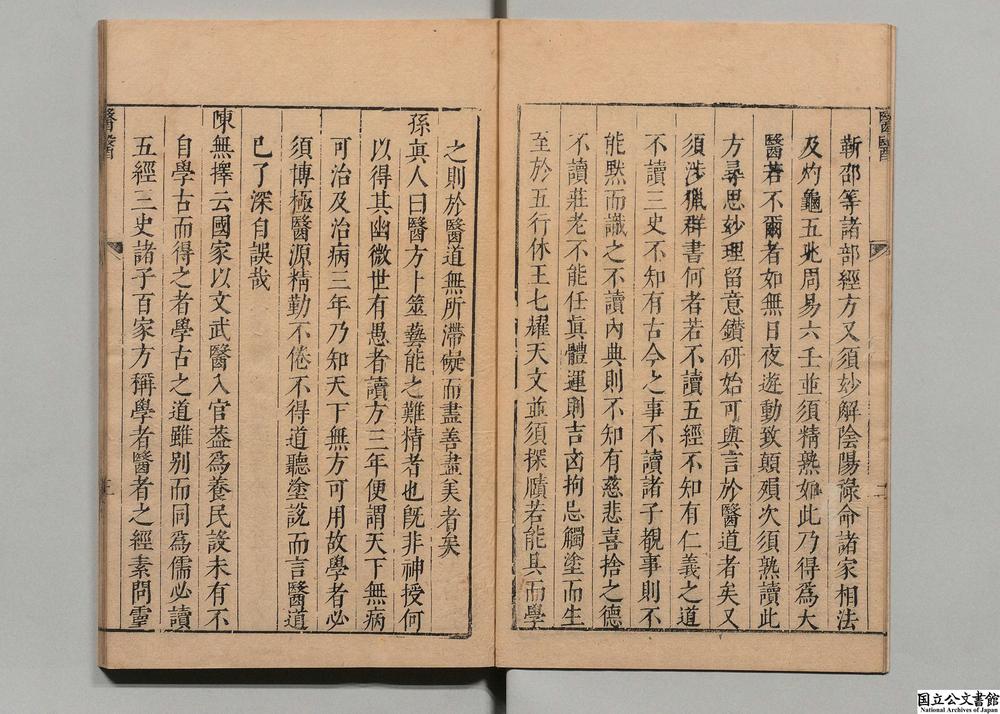 靳邵等諸部經方又須妙解陰陽祿命諸家相法
及灼龜五兆周易六壬並須精熟如此乃得爲大
醫若不爾者如無目夜遊動致顛殞次須熟讀此
方尋思妙理留意鑽研始可與言於醫道者矣又
須涉獵群書何者若不讀五經不知有仁義之道
不讀三史不知有古今之事不讀諸子覩事則不
能默而識之不讀內典則不知有慈悲喜捨之德
不讀莊老不能任眞體運則吉凶拘忌觸塗而生
至於五行休王七耀天文並須探賾若能具而學
之則於醫道無所滯礙而盡善盡美者矣
孫眞人曰醫方卜筮藝能之難精者也旣非神授何
以得其幽微世有愚者讀方三年便謂天下無病
可治及治病三年乃知天下無方可用故學者必
須博極醫源精勤不倦不得道聽塗說而言醫道
已了深自誤哉
陳無擇云國家以文武醫入官葢爲養民設未有不
自學古而得之者學古之道雖别而同爲儒必讀
五經三史諸子百家方稱學者醫者之經素問靈
国立公文書館
National Archives of Japan